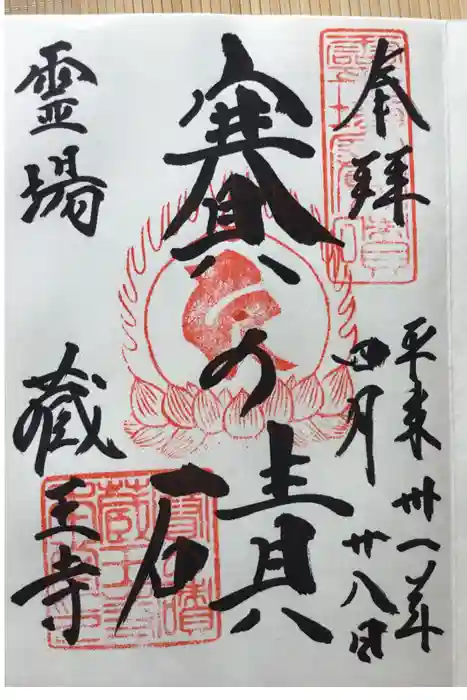 奉拝
平成卅一年
四月廿八日
賽の磧
霊場
蔵王寺